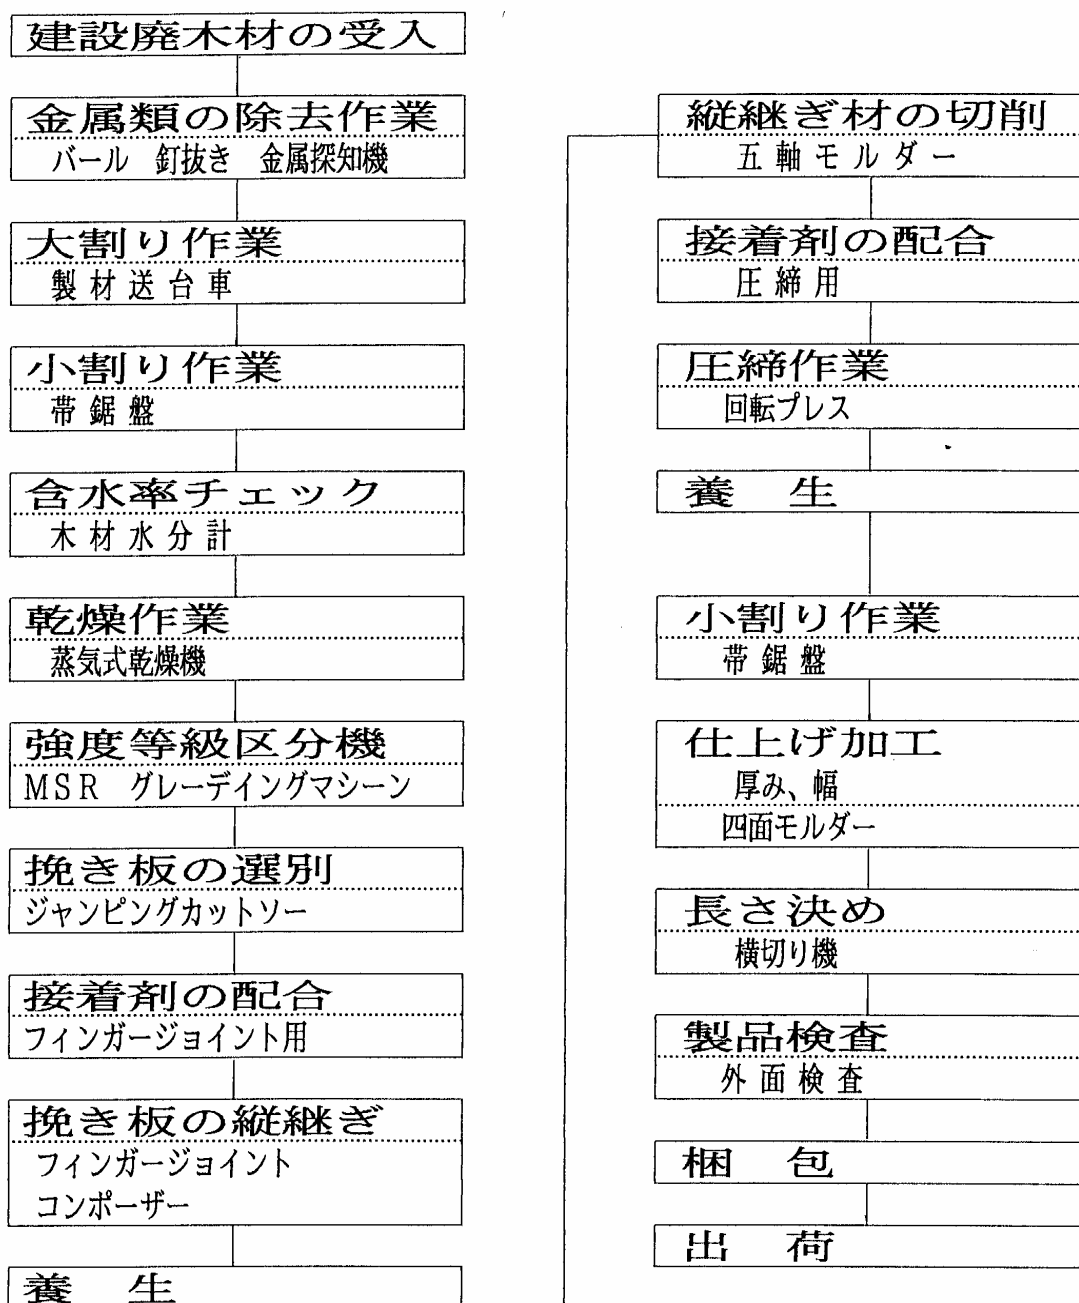 建設廃木材の受入
金属類の除去作業
バール　釘抜き　金属探知機
大割り作業
製材送台車
小割り作業
帯鋸盤
含水率チェック
木材水分計
乾燥作業
蒸気式乾燥機
強度等級区分機
MSR　グレーデイングマシーン
挽き板の選別
ジャンピングカットソー
接着剤の配合
フィンガージョイント用
挽き板の縦継ぎ
フィンガージョイント
コンポーザー
養　生
縦継ぎ材の切削
五軸モルダー
接着剤の配合
圧締用
圧締作業
回転プレス
養　生
小割り作業
帯鋸盤
仕上げ加工
厚み、幅
四面モルダー
長さ決め
横切り機
製品検査
外面検査
梱　包
出　荷